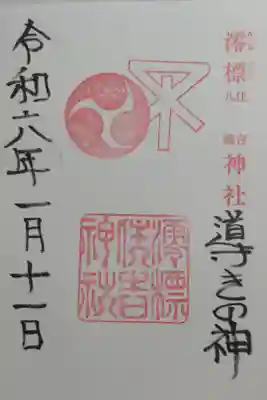 澪標
住吉
神社
道すきの神
澪標
住吉
神社
令和六年一月十一日